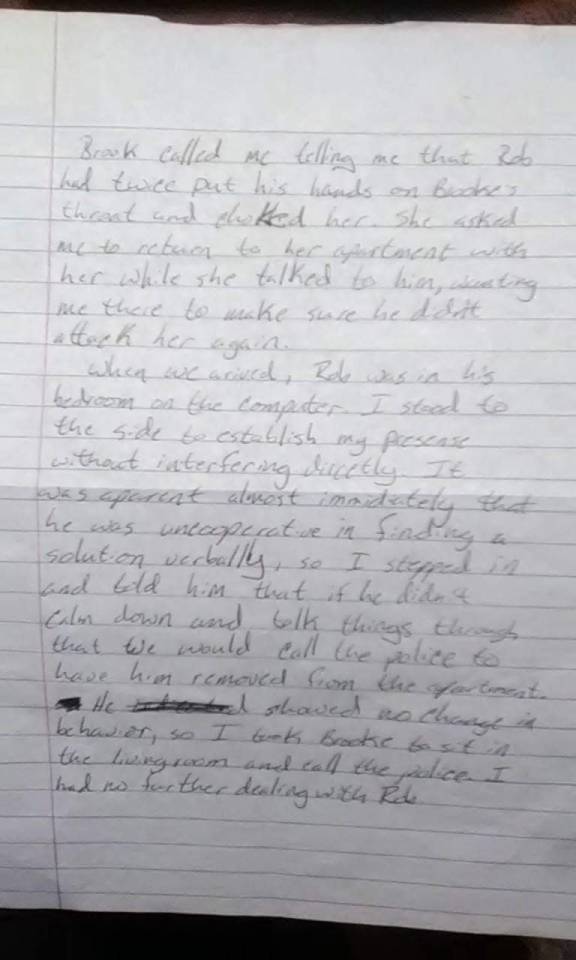 Brook called me telling me that Rob
had twice put his hands on Brooke's
throat and chokked her. She asked
me to return to her apartment with
her while she talked to him, wanting
me there to make sure he didn't
attack her again.
When we arived, Rob was in his
bedroom on the computer. I stood to
the side to establish my presense
without interfering directly. It
was aparent almost immidiately that
he was uncooperative in finding a
solution verbally, so I stepped in
and told him that if he didn't
calm down and talk things through
that we would call the police to
have him removed from the apartment.
He showed no change in
behavior, so I took Brooke to sit in
the livingroom and call the police. I
had no further dealing with Rob